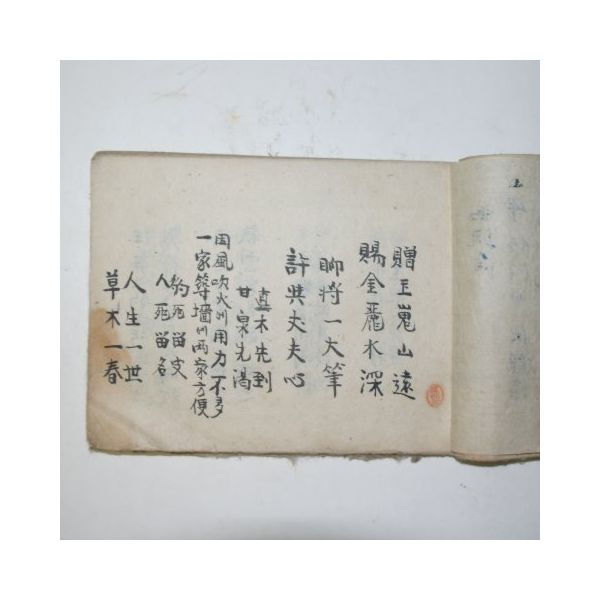 贈玉嵬山遠
賜金麗水深
聊將一大筆
許與丈夫心
真木先到
甘泉先渴
因風吹火川用力不多
一家築墻川兩家方便
豹死留皮
人死留名
人生一世
草木一春